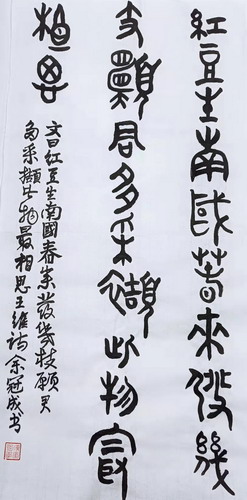 紅豆生南國春來發幾
枝願君多采擷此物最
相思
文曰紅豆生南國春來發幾枝願君
多采擷此物最相思王維詩余冠成书